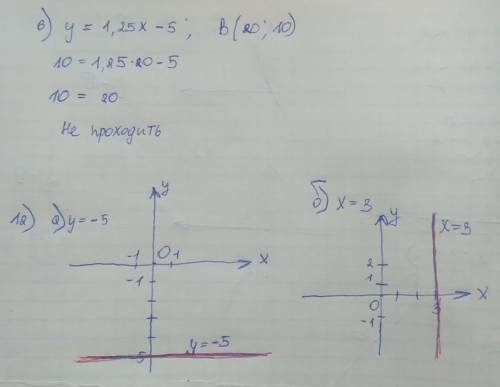 в) y = 1,25x - 5; B(20; 10)
10 = 1,25·20 - 5
10 = 20
Не проходить
12) а) y = -5
y
O
-1 1
x
-1
-5
y = -5
б) x = 3
y
x = 3
2
1
O
3
x
-1